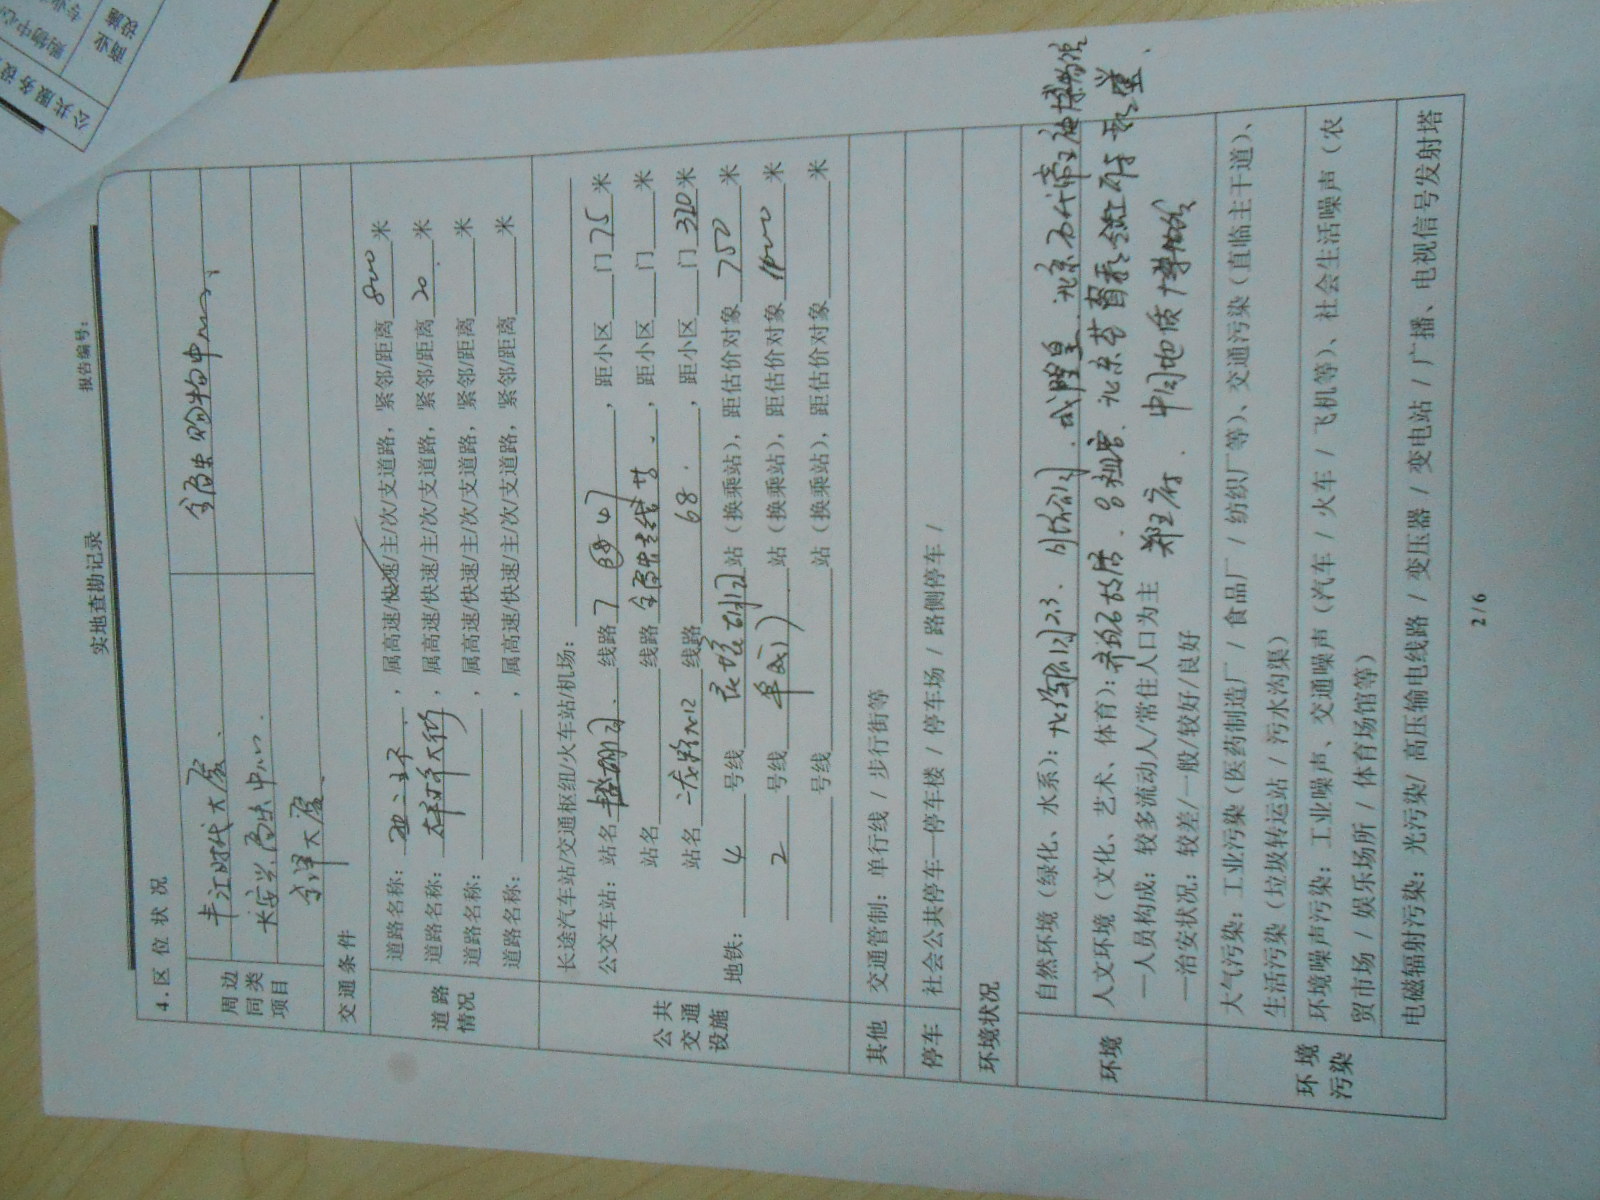 公共服务设
商业
设施
购物中心
专业
实地查勘记录
报告编号:
4.区 位 状 况
周边
同类
项目
丰汇时代大厦、
金融购物中心、
长安兴融中心、
金泽大厦
交通条件
道路
情况
道路名称: 西二环 , 属高速/快速/主/次/支道路, 紧邻/距离 800 米
道路名称: , 属高速/快速/主/次/支道路, 紧邻/距离 20 米
道路名称: , 属高速/快速/主/次/支道路, 紧邻/距离 米
道路名称: , 属高速/快速/主/次/支道路, 紧邻/距离 米
公 共
交 通
设 施
长途汽车站/交通枢纽/火车站/机场:
公交车站: 站名 线路 7 , 距小区 门 75 米
站名 线路 金融街专线 , 距小区 门 米
站名 线路 68 , 距小区 门 320 米
地铁: 4 号线 灵境胡同 站 (换乘站), 距估价对象 750 米
2 号线 阜成门 站 (换乘站), 距估价对象 米
号线 站 (换乘站), 距估价对象 米
其他
交通管制: 单行线 / 步行街等
停车
社会公共停车—停车楼 / 停车场 / 路侧停车 /
环境状况
环境
自然环境 (绿化、水系): 北京历代帝王庙博物馆
人文环境 (文化、艺术、体育): 中国地质博物馆
—人员构成: 较多流动人/常住人口为主 郑王府
—治安状况: 较差/一般/较好/良好
环 境
污染
大气污染: 工业污染 (医药制造厂 / 食品厂 / 纺织厂等)、交通污染 (直临主干道)、
生活污染 (垃圾转运站 / 污水沟渠)
环境噪声污染: 工业噪声、交通噪声 (汽车 / 火车 / 飞机等)、社会生活噪声 (农
贸市场 / 娱乐场所 / 体育场馆等)
电磁辐射污染: 光污染/ 高压输电线路 / 变压器 / 变电站 / 广播、电视信号发射塔
2 / 6